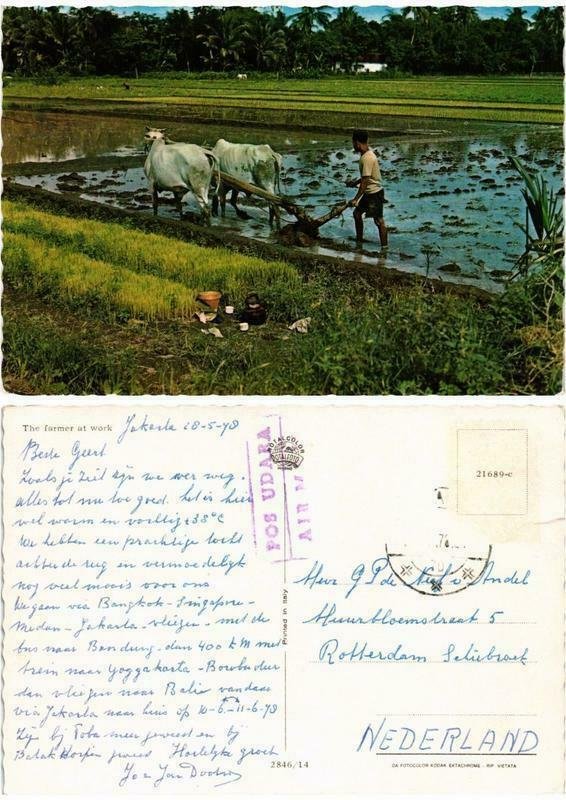 The farmer at work
Jakarta 28-5-78
Beste Geert
Zoals je ziet zijn we ver weg.
alles tot nu toe goed. het is hier
wel warm en vochtig ±33°C
We hebben een prachtige tocht
achter de rug en vermoedelijk
nog veel moois voor ons
We gaan via Bangkok-Singapore-
Medan-Jakarta-vliegen-met de
bus naar Bandung-dan 400 KM met
trein naar Yogyakarta-
dan vliegen naar Bali vandaar
via Jakarta naar huis op 10-6-11-6-78
Zijn bij Toba meer geweest en bij
Batak geweest Hartelijke groet
Jan
POS UDARA
AIR M
TOTALCOLOR
21689-c
Printed in Italy
Heer G P de Andel
Muurbloemstraat 5
Rotterdam Schiebroek
NEDERLAND
2846/14
DA FOTOCOLOR KODAK EKTACHROME - RIP. VIETATA